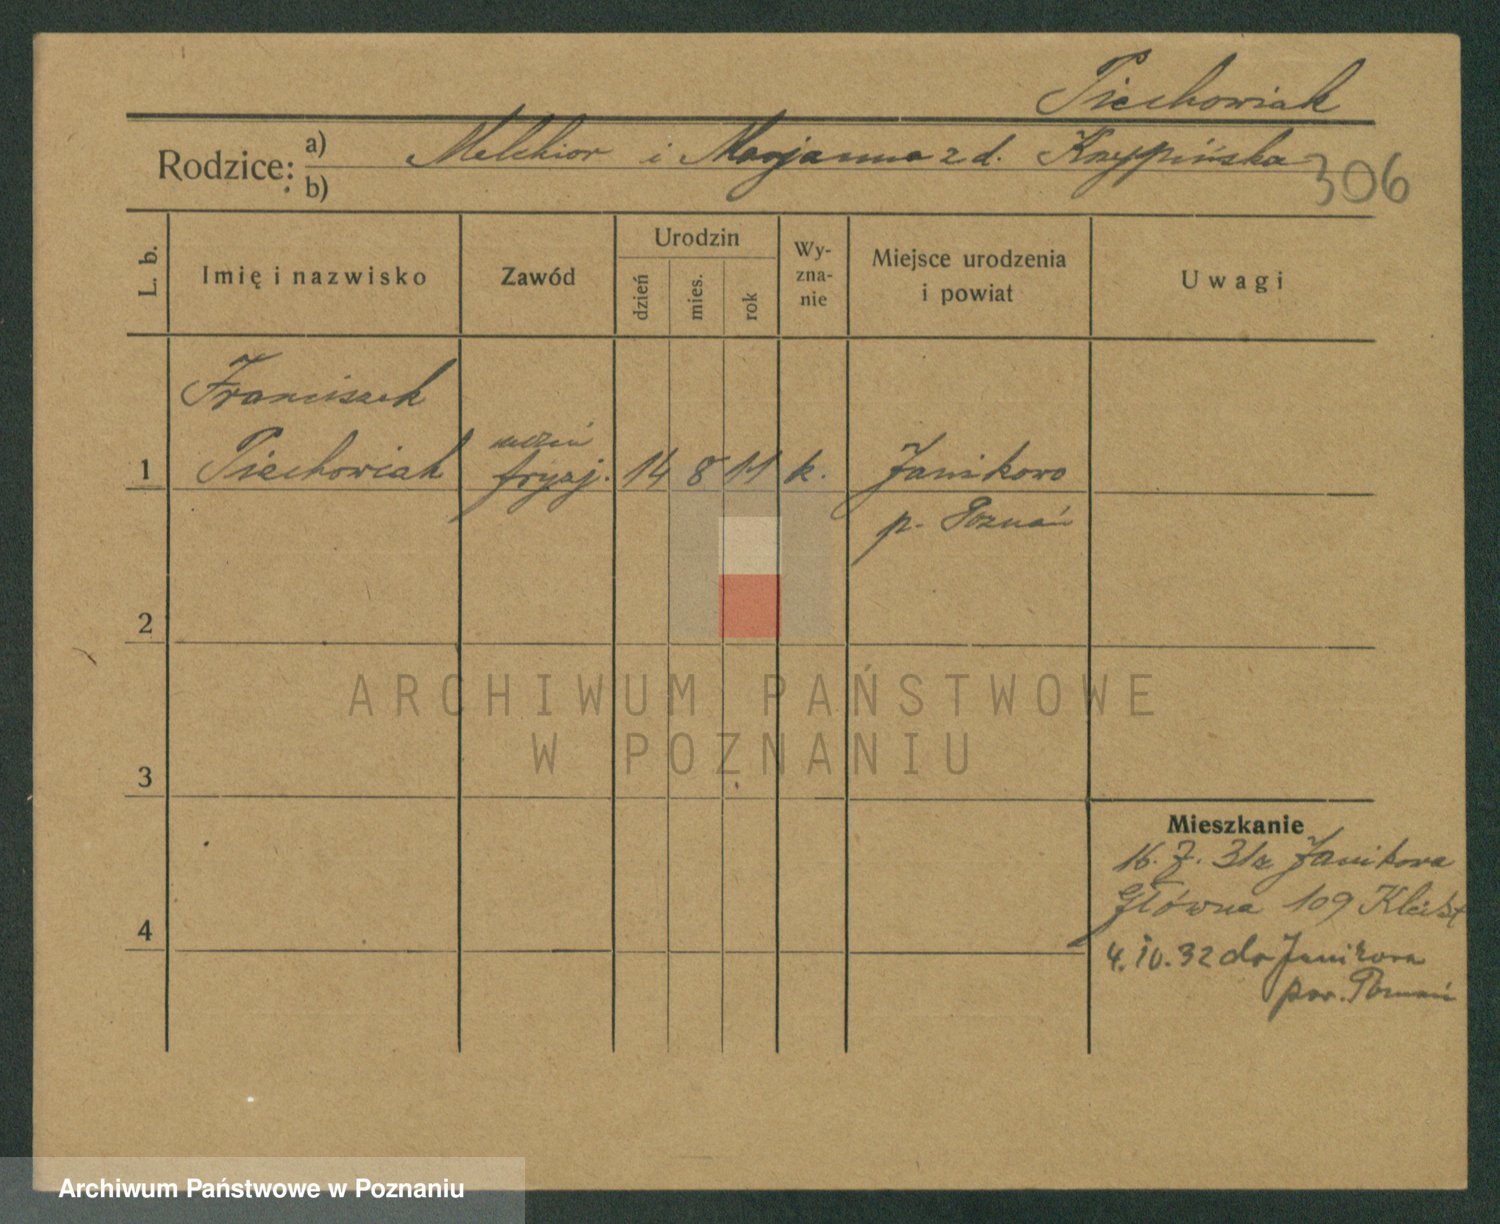 Piechowiak
Rodzice: a) Melchior i Marjanna z d. Krzypińska
b)
306
L. b.
Imię i nazwisko
Zawód
Urodzin
dzień
mies.
rok
Wy-
zna-
nie
Miejsce urodzenia
i powiat
Uwagi
Franciszek
1 Piechowiak
uczeń
fryzj.
14 8 11 k. Janikowo
p. Poznań
2
ARCHIWUM PAŃSTWOWE
W POZNANIU
3
Mieszkanie
16. 7. 31 z Janikowa
Główna 109
4
4. IV. 32 do Janikowa
pow. Poznań
Archiwum Państwowe w Poznaniu